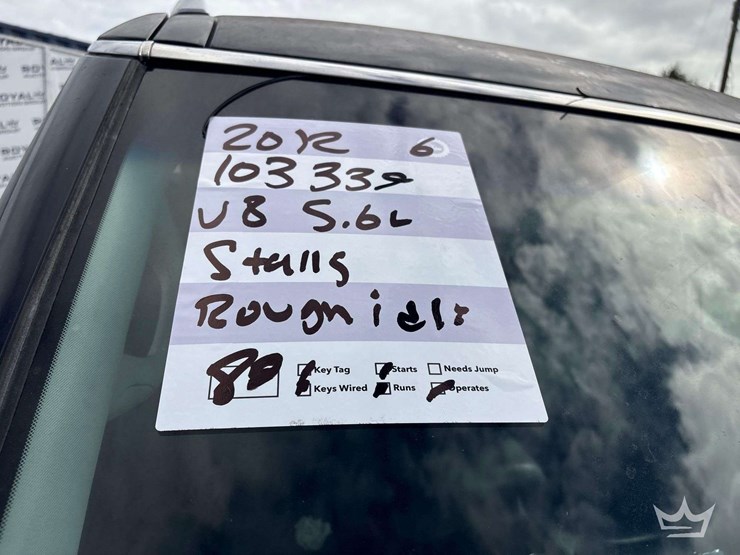 2012 6
103339
V8 5.6L
Stalls
Rough idle
80
Key Tag Starts Needs Jump
Keys Wired Runs Operates
ROYAL